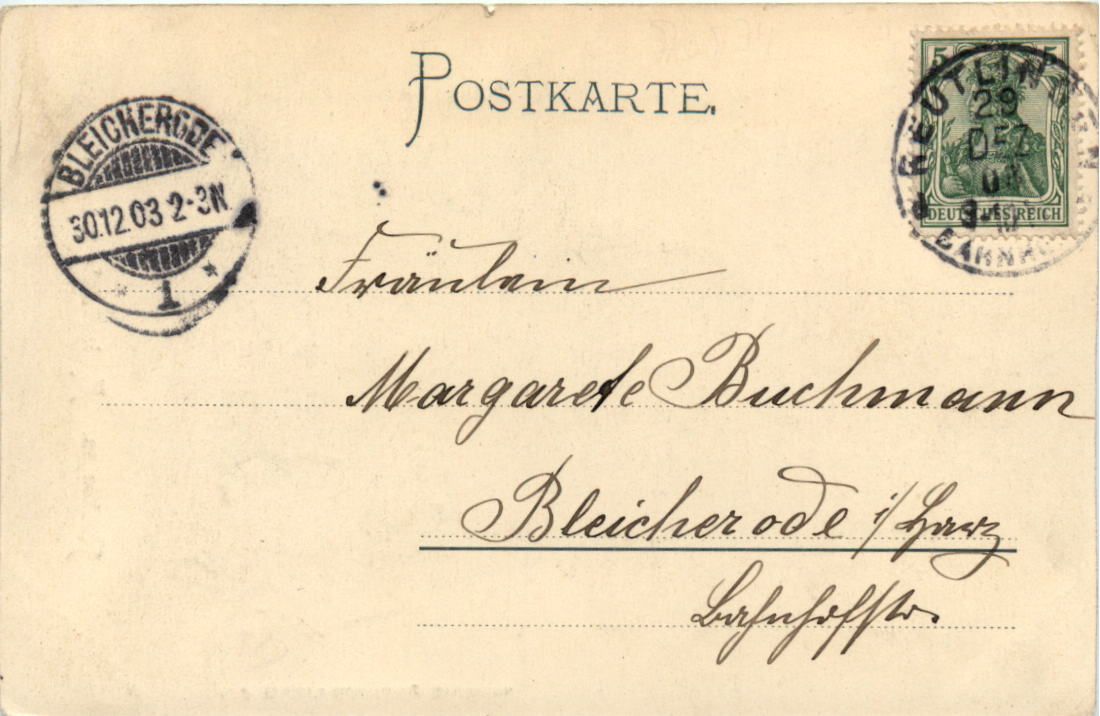 POSTKARTE.
5 5
REUTLINGEN
29
DEZ
03
BAHNHOF
DEUTSCHES REICH
BLEICHERODE
30.12.03 2-3N.
* 1 *
Fräulein
Margarete Buchmann
Bleicherode i/Harz
Bahnhofstr.